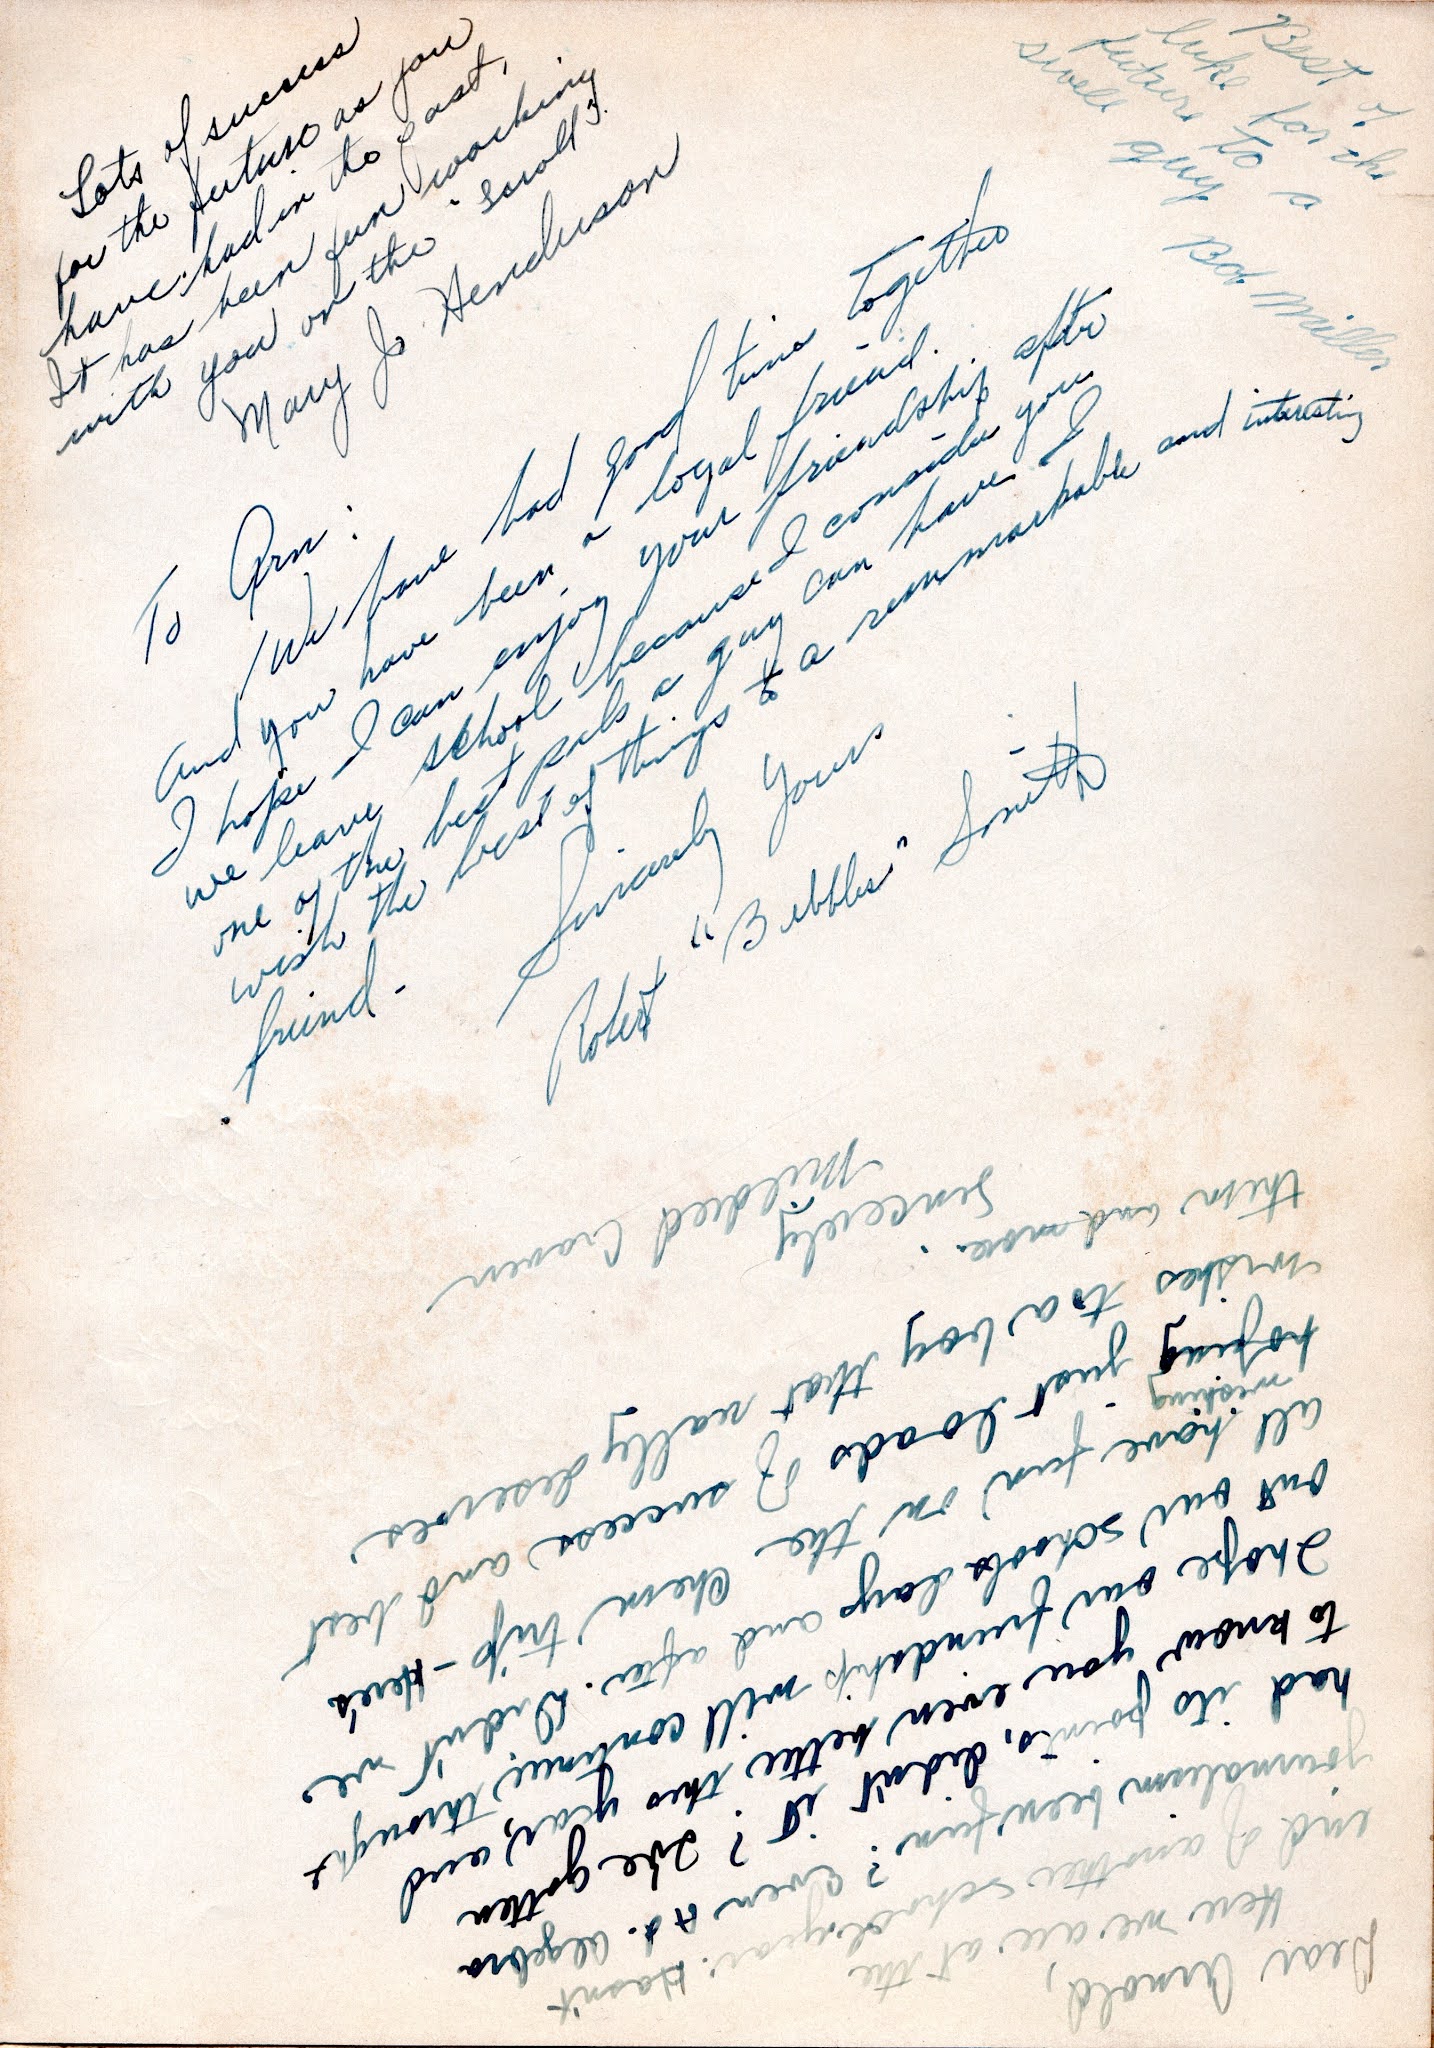 Lots of success
for the future as you
have had in the past,
It has been fun working
with you on the "Scroll".
Mary Jo Henderson
Best of
luke for the
future to a
swell guy
Bob Miller
To Arn:
We have had good times together
and you have been a loyal friend.
I hope I can enjoy your friendship after
we leave school because I consider you
one of the best pals a guy can have. I
wish the best of things to a remmarkable and interesting
friend.
Sincerely Yours
Robert "Bebbles" Smith
Dear Arnold,
Here we are at the
end of another school year. Hasn't
journalism been fun? Even Ad. Algebra
had its points, didn't it? I've gotten
to know you even better this year, and
I hope our friendship will continue throught
out our schools days and after. Didn't we
all have fun on the Chem trip - Here's
wishing
hoping just loads of success and best
wishes to a boy that really deserves
them and more.
Sincerely
Mildred Craven